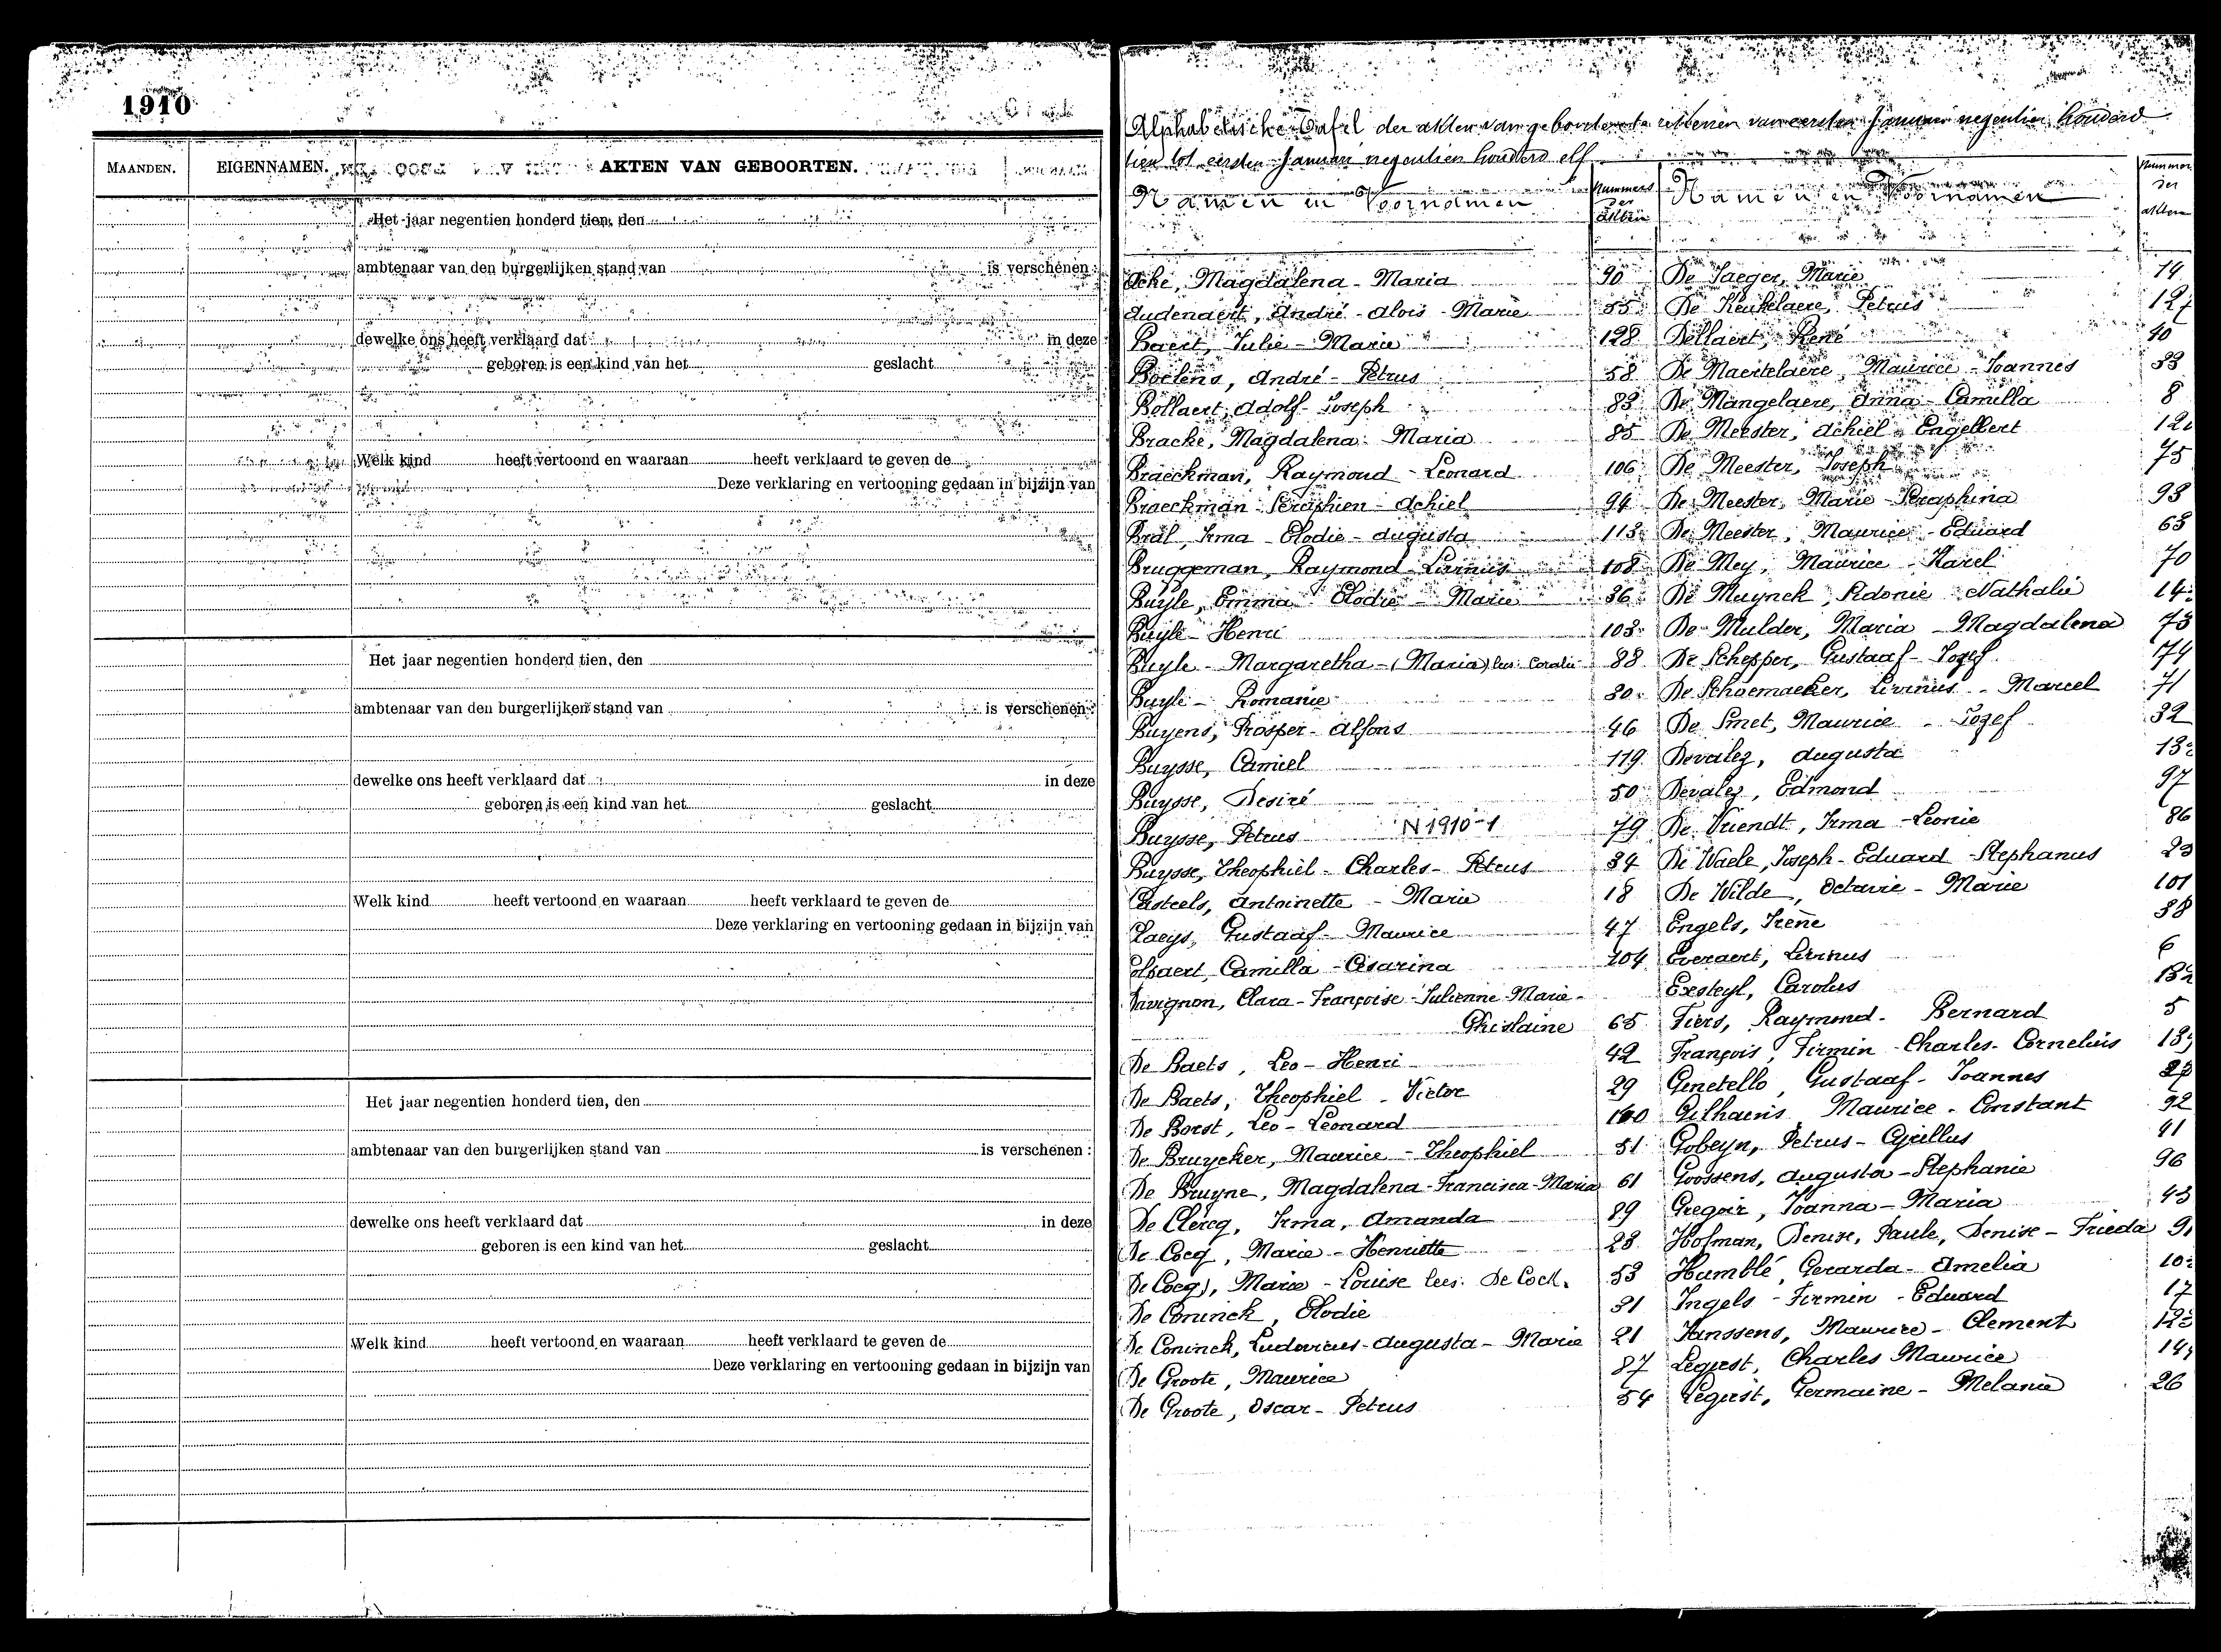 1910
MAANDEN. EIGENNAMEN. AKTEN VAN GEBOORTEN.
Het jaar negentien honderd tien, den
ambtenaar van den burgerlijken stand van is verschenen :
dewelke ons heeft verklaard dat in deze
geboren is een kind van het geslacht
Welk kind heeft vertoond en waaraan heeft verklaard te geven de
Deze verklaring en vertooning gedaan in bijzijn van
Het jaar negentien honderd tien, den
ambtenaar van den burgerlijken stand van is verschenen :
dewelke ons heeft verklaard dat in deze
geboren is een kind van het geslacht
Welk kind heeft vertoond en waaraan heeft verklaard te geven de
Deze verklaring en vertooning gedaan in bijzijn van
Het jaar negentien honderd tien, den
ambtenaar van den burgerlijken stand van is verschenen :
dewelke ons heeft verklaard dat in deze
geboren is een kind van het geslacht
Welk kind heeft vertoond en waaraan heeft verklaard te geven de
Deze verklaring en vertooning gedaan in bijzijn van
Alphabetische Tafel der akten van geboorte van eersten Januari negentien honderd
tien tot eersten Januari negentien honderd elf
Namen en Voornamen Nummers der akten
Ache, Magdalena - Maria 90
Audenaert, André - Alois - Marie 55
Baert, Julie - Marie 128
Boelens, André - Petrus 58
Bollaert, Adolf - Joseph 83
Bracke, Magdalena Maria 85
Braeckman, Raymond - Leonard 106
Braeckman Seraphien - Achiel 94
Bral, Irma - Elodie - Augusta 113
Bruggeman, Raymond Livinus 108
Buyle, Emma Elodie - Marie 36
Buyle - Henri 103
Buyle - Margaretha - (Maria) lees: Coralie 88
Buyle - Romanie 80
Buyens, Prosper - Alfons 46
Buysse, Camiel 119
Buysse, Desiré 50
Buysse, Petrus N 1910-1 79
Buysse, Theophiel - Charles - Petrus 34
Casteels, Antoinette - Marie 18
Claeys, Gustaaf - Maurice 47
Colpaert, Camilla - Cesarina 104
Davignon, Clara - Françoise - Julienne Marie -
Ghislaine 65
De Baets, Leo - Henri 42
De Baets, Theophiel - Victor 29
De Borst, Leo - Leonard 100
De Bruycker, Maurice - Theophiel 51
De Bruyne, Magdalena - Francisca - Maria 61
De Clercq, Irma, Amanda 89
De Cocq, Marie - Henriette 28
De Cocq), Marie - Louise lees: De Cock. 53
De Coninck, Elodie 31
De Coninck, Ludovicus - Augusta - Marie 21
De Groote, Maurice 87
De Groote, Oscar - Petrus 54
Namen en Voornamen Nummers der akten
De Jaeger, Marie 14
De Keukelaere, Petrus 127
Dellaert, René 40
De Maertelaere, Maurice - Joannes 33
De Mangelaere, Anna - Camilla 8
De Meester, Achiel - Engelbert
De Meester, Joseph 75
De Meester, Marie - Seraphina 93
De Meester, Maurice - Eduard 63
De Mey, Maurice - Karel 70
De Muynck, Sidonie Nathalie
De Mulder, Maria - Magdalena 73
De Schepper, Gustaaf - Jozef 174
De Schoemaeker, Livinus - Marcel 71
De Smet, Maurice - Jozef 32
Devalez, Augusta
Devalez, Edmond 97
De Vriendt, Irma - Leonie 86
De Waele, Joseph - Eduard - Stephanus 23
De Wilde, Octavie - Marie 101
Engels, Irène 38
Everaert, Livinus 6
Exsteyl, Carolus 132
Fiers, Raymond - Bernard 5
François, Firmin - Charles - Cornelius
Genetello, Gustaaf - Joannes
Gilhains Maurice - Constant 92
Gobeyn, Petrus - Cyrillus 41
Goossens, Augusta - Stephanie 96
Gregoir, Joanna - Maria 43
Hofman, Denise, Paule, Denise - Frieda
Humblé, Gerarda - Amelia
Ingels - Firmin - Eduard 17
Janssens, Maurice - Clement
Legiest, Charles Maurice
Legiest, Germaine - Melanie 26